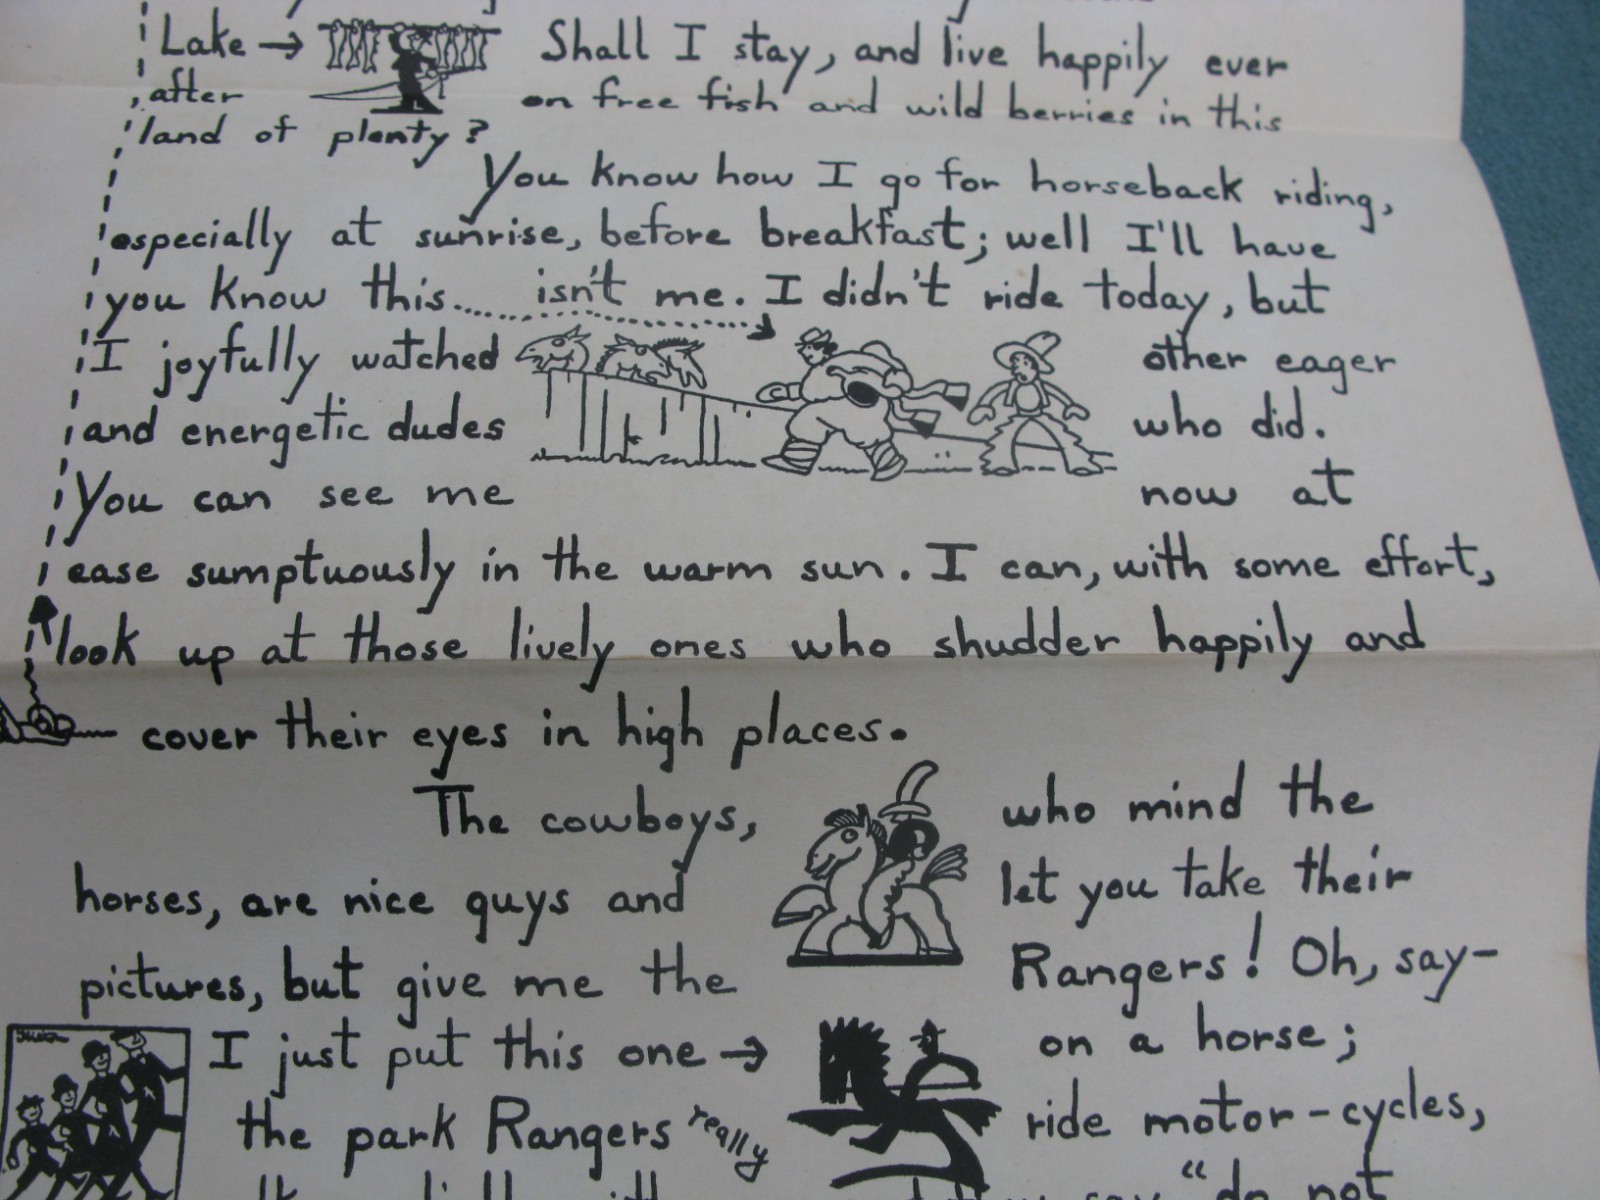 Lake → Shall I stay, and live happily ever
after on free fish and wild berries in this
land of plenty?
You know how I go for horseback riding,
especially at sunrise, before breakfast; well I'll have
you know this..... isn't me. I didn't ride today, but
I joyfully watched other eager
and energetic dudes who did.
You can see me now at
ease sumptuously in the warm sun. I can, with some effort,
look up at those lively ones who shudder happily and
cover their eyes in high places.
The cowboys, who mind the
horses, are nice guys and let you take their
pictures, but give me the Rangers! Oh, say-
I just put this one → on a horse;
the park Rangers really ride motor-cycles,
say "do not